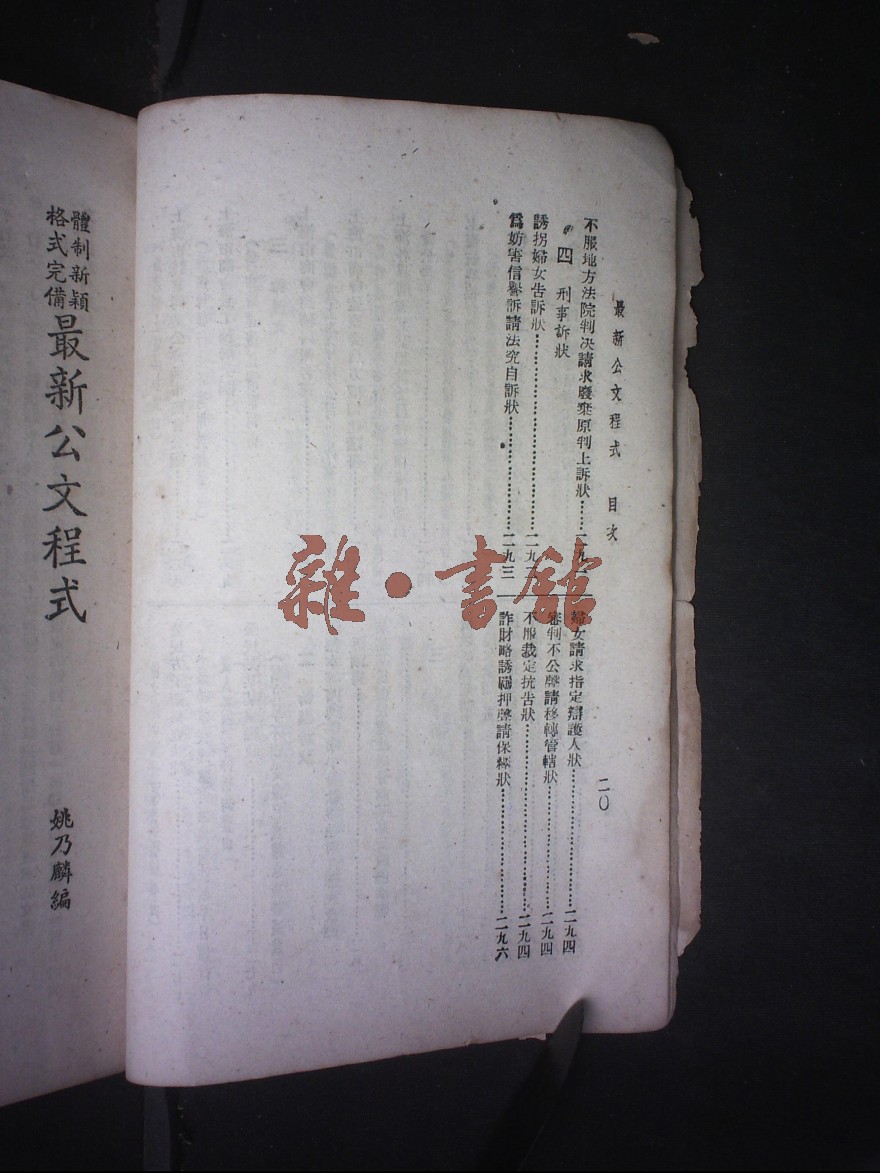 最新公文程式 目次 二〇
不服地方法院判決請求廢棄原判上訴狀
四 刑事訴狀
誘拐婦女告訴狀
爲妨害信譽訴請法究自訴狀……二九三
婦女請求指定辯護人狀……二九四
審判不公聲請移轉管轄狀……二九四
不服裁定抗告狀……二九四
詐財略誘羈押聲請保釋狀……二九六
體制新穎
格式完備
最新公文程式
姚乃麟編
雜·書館